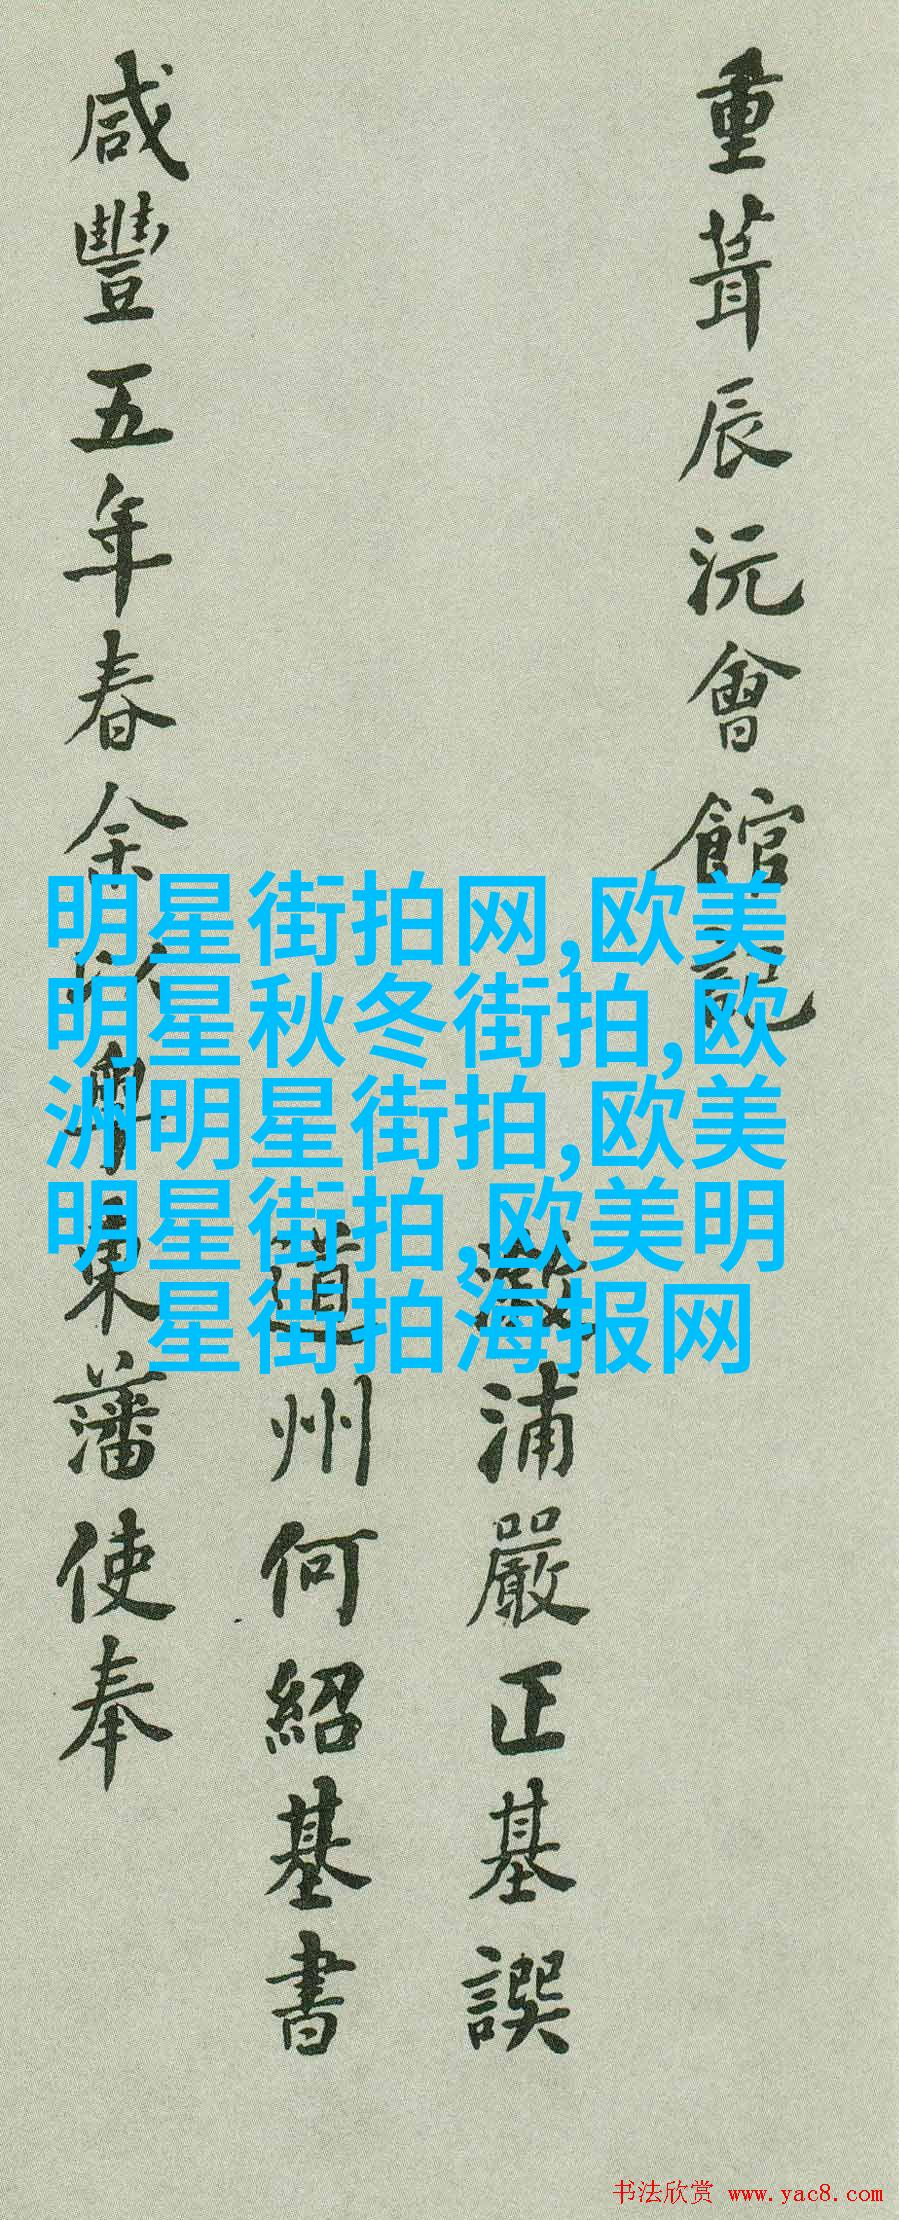 重葺辰沅會館記
溆浦嚴正基譔
道州何紹基書
咸豐五年春余以粤東藩使奉
明星街拍网,欧美
明星秋冬街拍,欧
洲明星街拍,欧美
明星街拍,欧美明
星街拍海报网
书法欣赏 www.yac8.com